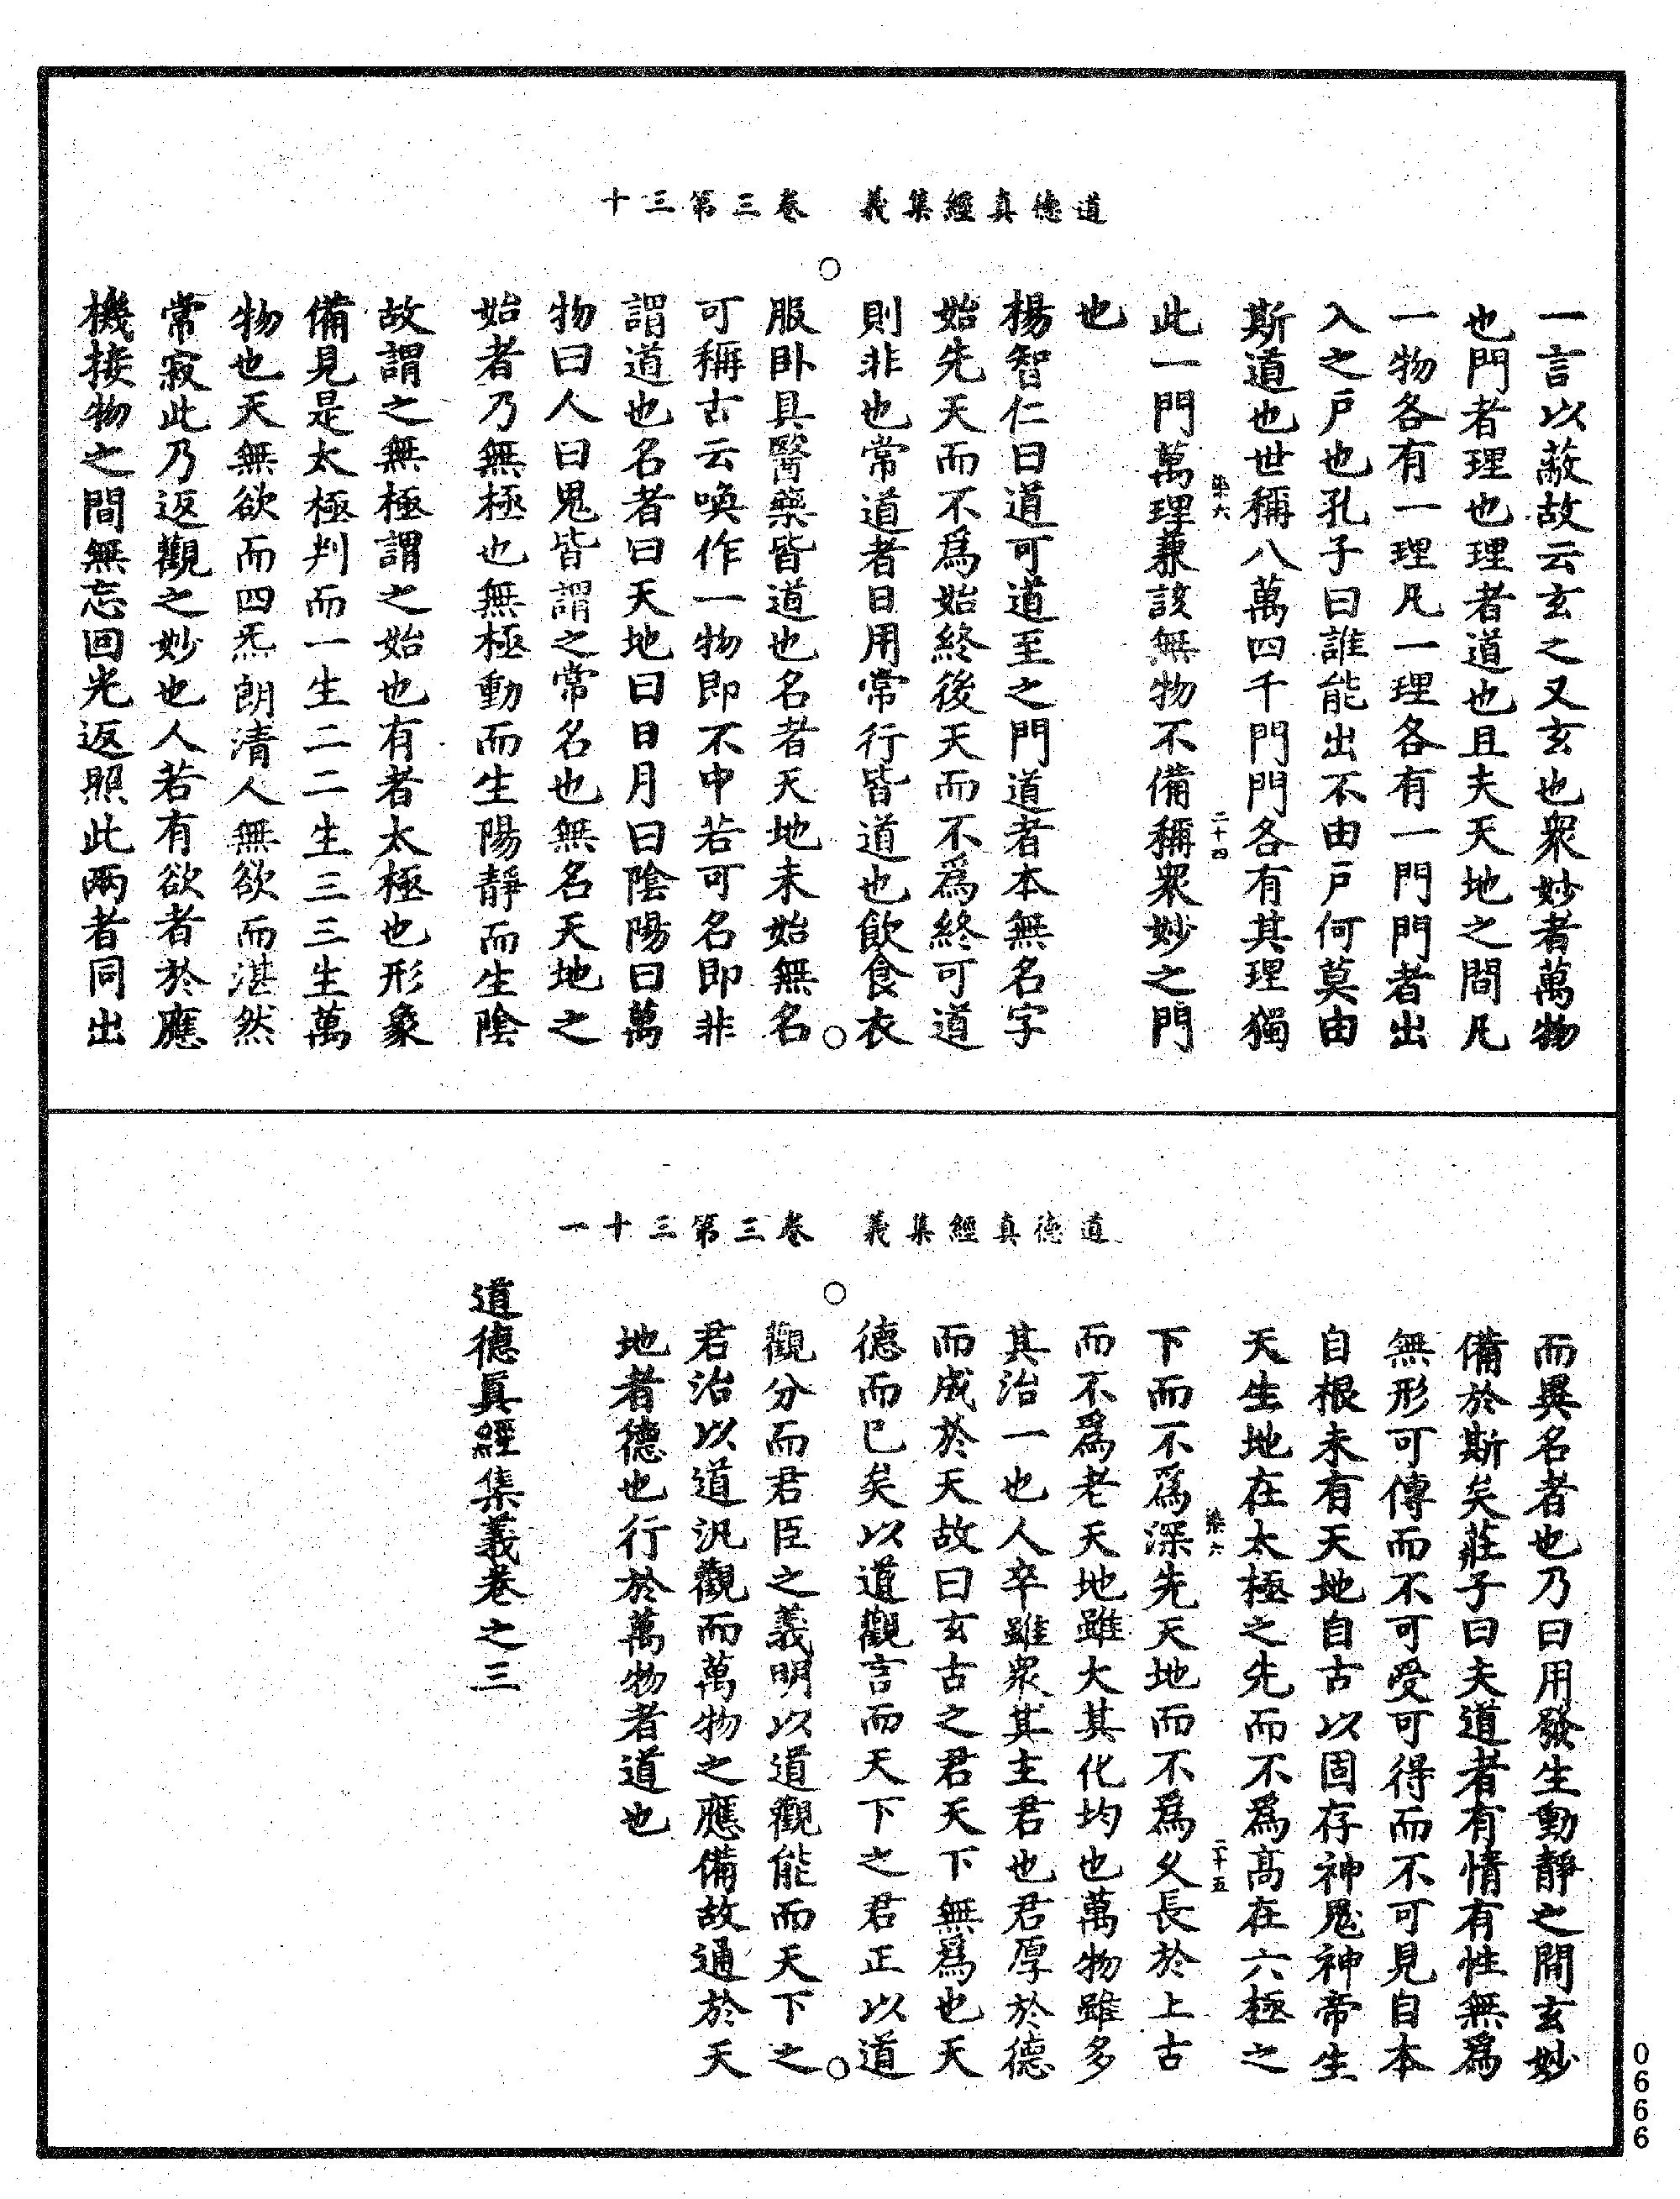 道德真經集義　卷三第三十
一言以蔽故云玄之又玄也衆妙者萬物
也門者理也理者道也且夫天地之間凡
一物各有一理凡一理各有一門門者出
入之戶也孔子曰誰能出不由戶何莫由
斯道也世稱八萬四千門門各有其理獨
染六　二十四
此一門萬理兼該無物不備稱衆妙之門
也
楊智仁曰道可道至之門道者本無名字
始先天而不爲始終後天而不爲終可道
則非也常道者日用常行皆道也飲食衣
服卧具醫藥皆道也名者天地未始無名
可稱古云喚作一物即不中若可名即非
謂道也名者曰天地曰日月曰陰陽曰萬
物曰人曰鬼皆謂之常名也無名天地之
始者乃無極也無極動而生陽靜而生陰
故謂之無極謂之始也有者太極也形象
備見是太極判而一生二二生三三生萬
物也天無欲而四炁朗清人無欲而湛然
常寂此乃返觀之妙也人若有欲者於應
機接物之間無忘回光返照此兩者同出
道德真經集義　卷三第三十一
而異名者也乃曰用發生動靜之間玄妙
備於斯矣莊子曰夫道者有情有性無爲
無形可傳而不可受可得而不可見自本
自根未有天地自古以固存神鬼神帝生
天生地在太極之先而不爲高在六極之
染六　二十五
下而不爲深先天地而不爲久長於上古
而不爲老天地雖大其化均也萬物雖多
其治一也人卒雖衆其主君也君厚於德
而成於天故曰玄古之君天下無爲也天
德而已矣以道觀言而天下之君正以道
觀分而君臣之義明以道觀能而天下之
君治以道汎觀而萬物之應備故通於天
地者德也行於萬物者道也
道德眞經集義卷之三
0666